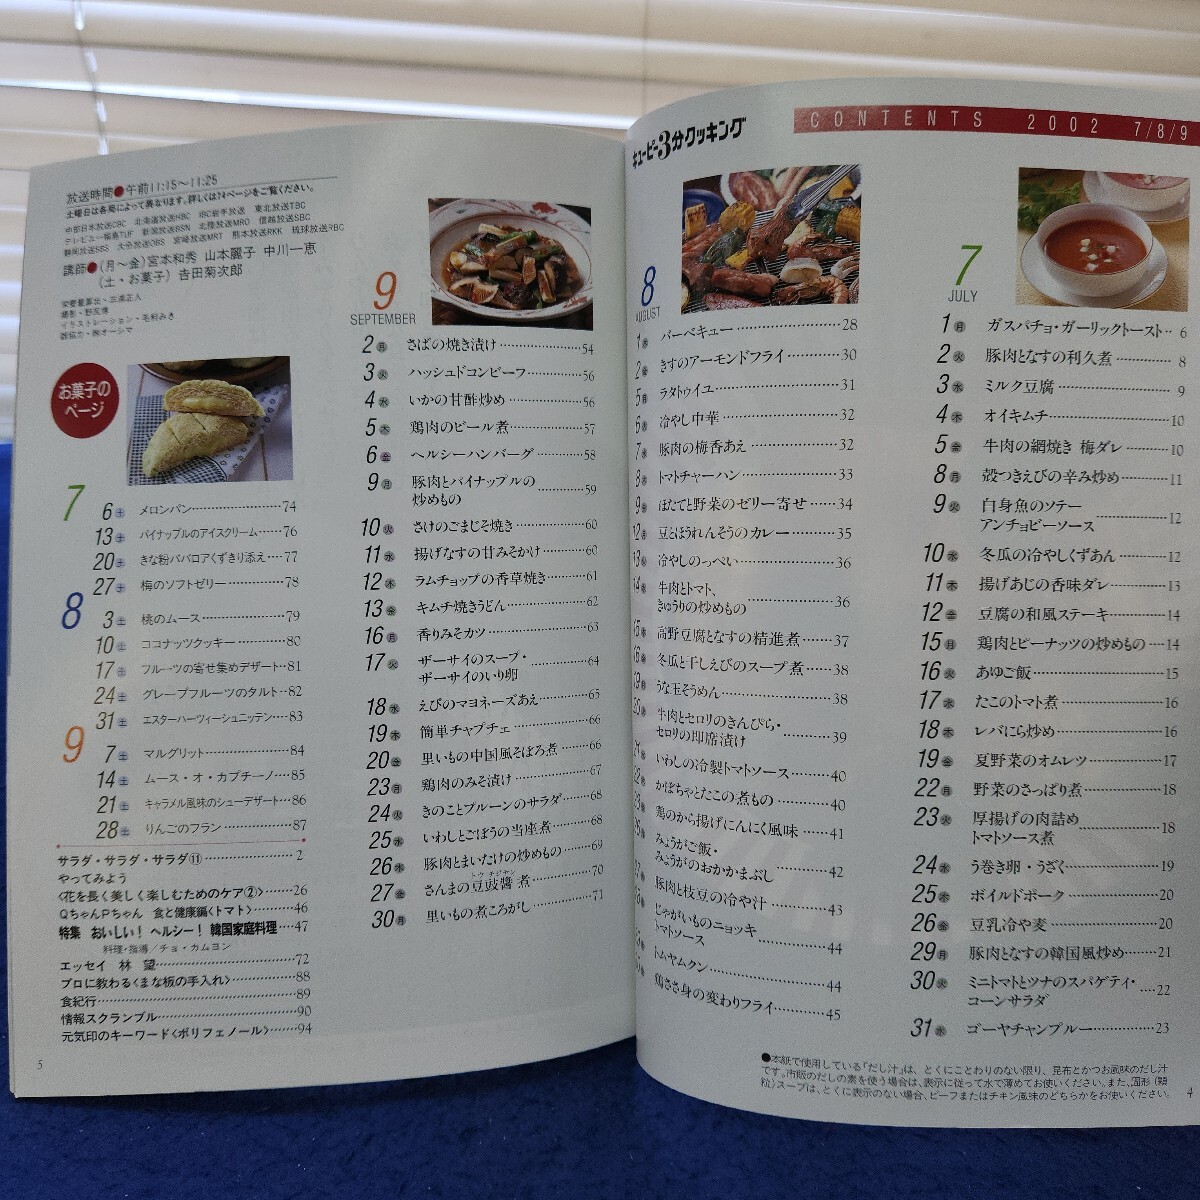 キユーピー3分クッキング
CONTENTS 2002 7/8/9
7
JULY
1月 ガスパチョ・ガーリックトースト‥6
2火 豚肉となすの利久煮…………8
3水 ミルク豆腐…………9
4木 オイキムチ…………10
5金 牛肉の網焼き 梅ダレ…10
8月 殻つきえびの辛み炒め……11
9火 白身魚のソテー
アンチョビーソース…………12
10水 冬瓜の冷やしくずあん…12
11木 揚げあじの香味ダレ………13
12金 豆腐の和風ステーキ………14
15月 鶏肉とピーナッツの炒めもの…14
16火 あゆご飯…………15
17水 たこのトマト煮…………16
18木 レバにら炒め…………16
19金 夏野菜のオムレツ…………17
22月 野菜のさっぱり煮…………18
23火 厚揚げの肉詰め
トマトソース煮…………18
24水 う巻き卵・うざく…………19
25木 ボイルドポーク…………20
26金 豆乳冷や麦…………20
29月 豚肉となすの韓国風炒め…21
30火 ミニトマトとツナのスパゲティ・
コーンサラダ…………22
31水 ゴーヤチャンプルー…………23
8
AUGUST
1木 バーベキュー…………28
2金 きすのアーモンドフライ……30
5月 ラタトゥイユ…………31
6火 冷やし中華…………32
7水 豚肉の梅香あえ…………32
8木 トマトチャーハン…………33
9金 ほたてと野菜のゼリー寄せ…34
豆とほうれんそうのカレー…35
冷やしのっぺい…………36
牛肉とトマト、
きゅうりの炒めもの…………36
高野豆腐となすの精進煮…37
冬瓜と干しえびのスープ煮…38
うな玉そうめん…………38
牛肉とセロリのきんぴら・
セロリの即席漬け…………39
いわしの冷製トマトソース……40
かぼちゃとたこの煮もの……40
鶏のから揚げにんにく風味…41
みょうがご飯・
みょうがのおかかまぶし……42
豚肉と枝豆の冷や汁………43
じゃがいものニョッキ
トマトソース…………44
トムヤムクン…………44
鶏ささ身の変わりフライ……45
●本紙で使用している「だし汁」は、とくにことわりのない限り、昆布とかつお風味のだし汁
です。市販のだしの素を使う場合は、表示に従って水で薄めてお使いください。また、固形(顆
粒)スープは、とくに表示のない場合、ビーフまたはチキン風味のどちらかをお使いください。
4
放送時間●午前11:15〜11:25
土曜日は各局によって異なります。詳しくは74ページをご覧ください。
中部日本放送CBC 北海道放送HBC IBC岩手放送 東北放送TBC
テレビユー福島TUF 新潟放送BSN 北陸放送MRO 信越放送SBC
静岡放送SBS 大分放送OBS 宮崎放送MRT 熊本放送RKK 琉球放送RBC
講師●(月〜金)宮本和秀 山本麗子 中川一恵
(土・お菓子)吉田菊次郎
お菓子の
ページ
7
6土 メロンパン…………74
13土 パイナップルのアイスクリーム……76
20土 きな粉ババロアくずきり添え…77
27土 梅のソフトゼリー…………78
8
3土 桃のムース…………79
10土 ココナッツクッキー…………80
17土 フルーツの寄せ集めデザート…81
24土 グレープフルーツのタルト…82
31土 エスターハーヴィーシュニッテン…83
9
7土 マルグリット…………84
14土 ムース・オ・カプチーノ…85
21土 キャラメル風味のシューデザート…86
28土 りんごのフラン…………87
サラダ・サラダ・サラダ⑪…………2
やってみよう
〈花を長く美しく楽しむためのケア②〉……26
QちゃんPちゃん 食と健康編〈トマト〉……46
特集 おいしい! ヘルシー! 韓国家庭料理……47
料理・指導/チョ・カムヨン
エッセイ 林 望…………72
プロに教わる〈まな板の手入れ〉………88
食紀行…………89
情報スクランブル…………90
元気印のキーワード〈ポリフェノール〉……94
9
SEPTEMBER
2月 さばの焼き漬け…………54
3火 ハッシュドコンビーフ………56
4水 いかの甘酢炒め…………56
5木 鶏肉のビール煮…………57
6金 ヘルシーハンバーグ………58
9月 豚肉とパイナップルの
炒めもの…………59
10火 さけのごまじそ焼き………60
11水 揚げなすの甘みそかけ…60
12木 ラムチョップの香草焼き…61
13金 キムチ焼きうどん…………62
16月 香りみそカツ…………63
17火 ザーサイのスープ・
ザーサイのいり卵…………64
18水 えびのマヨネーズあえ……65
19木 簡単チャプチェ…………66
20金 里いもの中国風そぼろ煮…66
23月 鶏肉のみそ漬け…………67
24火 きのことプルーンのサラダ…68
25水 いわしとごぼうの当座煮…68
26木 豚肉とまいたけの炒めもの…69
27金 さんまの豆豉醬煮…………70
30月 里いもの煮ころがし………71
5